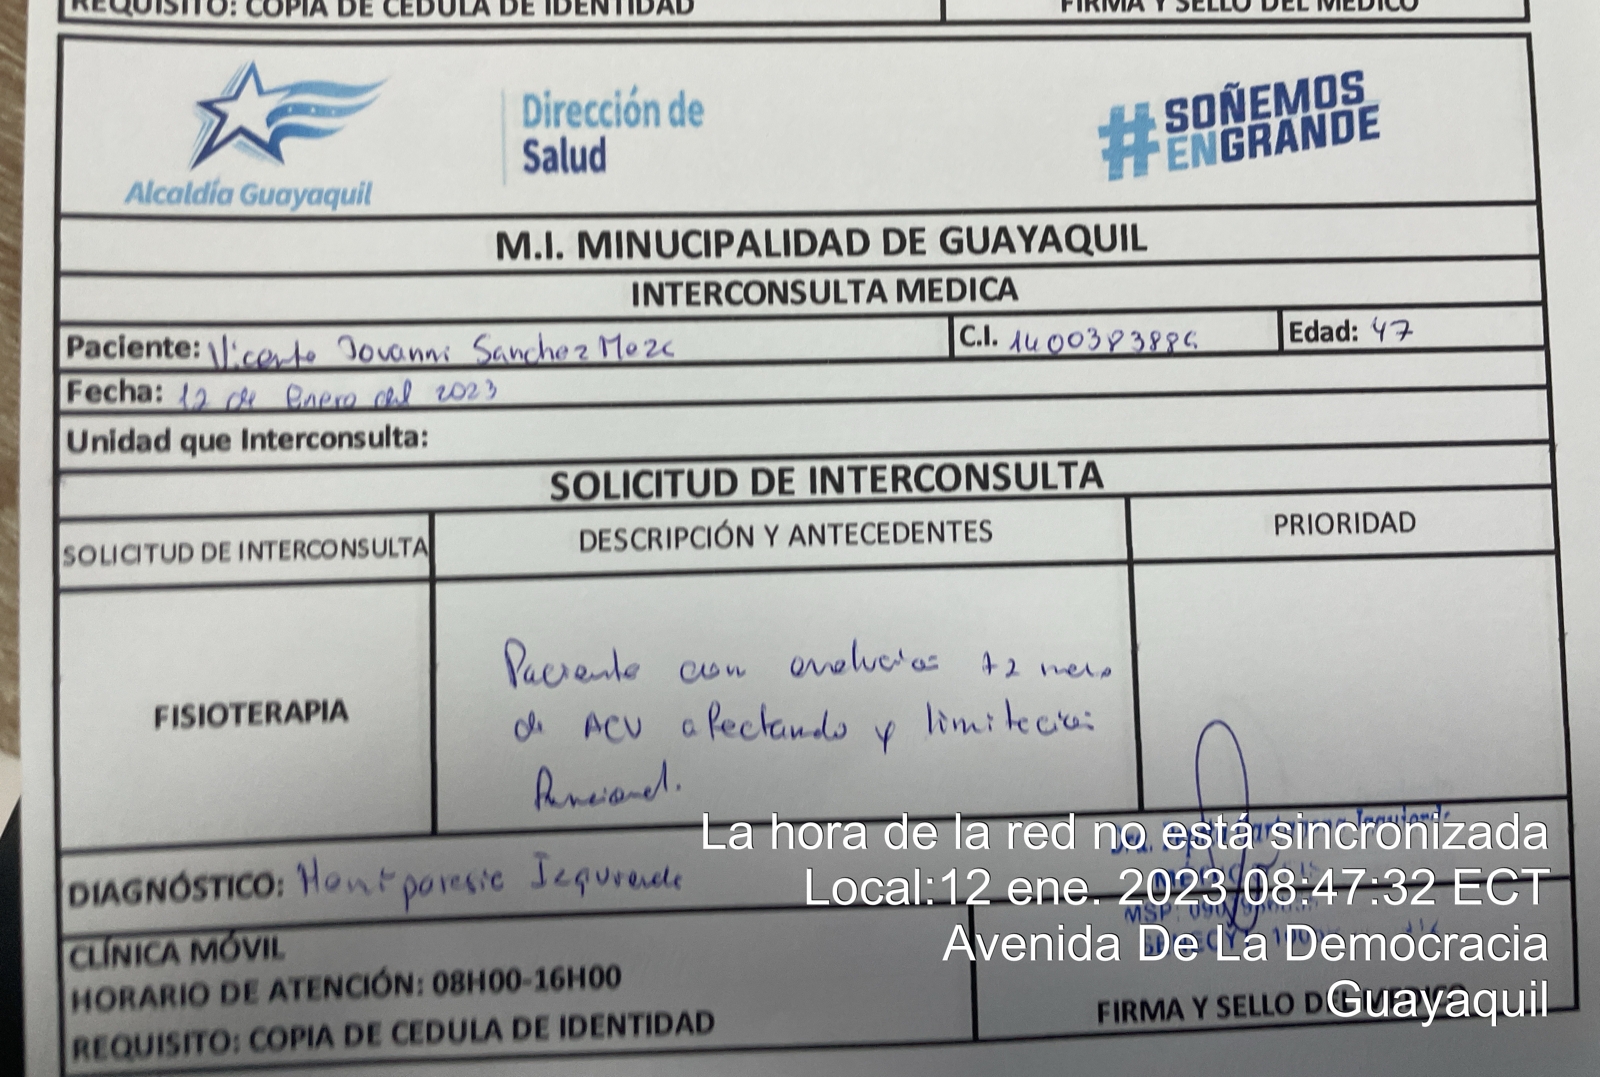 REQUISITO: COPIA DE CEDULA DE IDENTIDAD
FIRMA Y SELLO DEL MEDICO
Alcaldía Guayaquil
Dirección de
Salud
#SOÑEMOS
ENGRANDE
M.I. MINUCIPALIDAD DE GUAYAQUIL
INTERCONSULTA MEDICA
Paciente: Vicente Jovanni Sanchez
C.I.
Edad: 47
Fecha: 12 de Enero del 2023
Unidad que Interconsulta:
SOLICITUD DE INTERCONSULTA
SOLICITUD DE INTERCONSULTA
DESCRIPCIÓN Y ANTECEDENTES
PRIORIDAD
FISIOTERAPIA
Paciente con evolucion
de ACV afectando y limitacion
funcional.
DIAGNÓSTICO: Izquierda
CLÍNICA MÓVIL
HORARIO DE ATENCIÓN: 08H00-16H00
REQUISITO: COPIA DE CEDULA DE IDENTIDAD
Dra.
MSP:
FIRMA Y SELLO DEL MEDICO
La hora de la red no está sincronizada
Local:12 ene. 2023 08:47:32 ECT
Avenida De La Democracia
Guayaquil